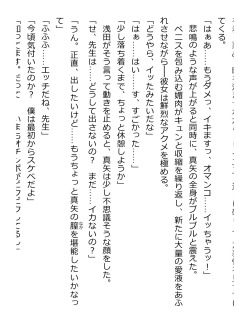 てくる。
「はぁあ……もうダメっ、イキますっ、オマンコ……イッちゃうッ！」
悲鳴のような声が上がると同時に、真矢の全身がブルブルと震えた。
ペニスを包み込む媚肉がキュンと収縮を繰り返し、新たに大量の愛液をあふ
れさせながら――彼女は鮮烈なアクメを極める。
「どうやら、イッたみたいだな」
「はぁ……はい……す、すごかった……」
「少し落ち着くまで、ちょっと休憩しようか」
浅田がそう言って動きを止めると、真矢は少し不思議そうな顔をした。
「せ、先生は……どうして出さないの？　まだ……イカないの？」
「うん。正直、出したいけど……もうちょっと真矢の膣を堪能したいかなっ
て」
「ふふふ……エッチだね、先生」
「今頃気付いたのか？　僕は最初からスケベだよ」